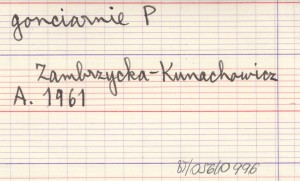 gonciarnie P
Zambrzycka-Kunachowicz
A. 1961